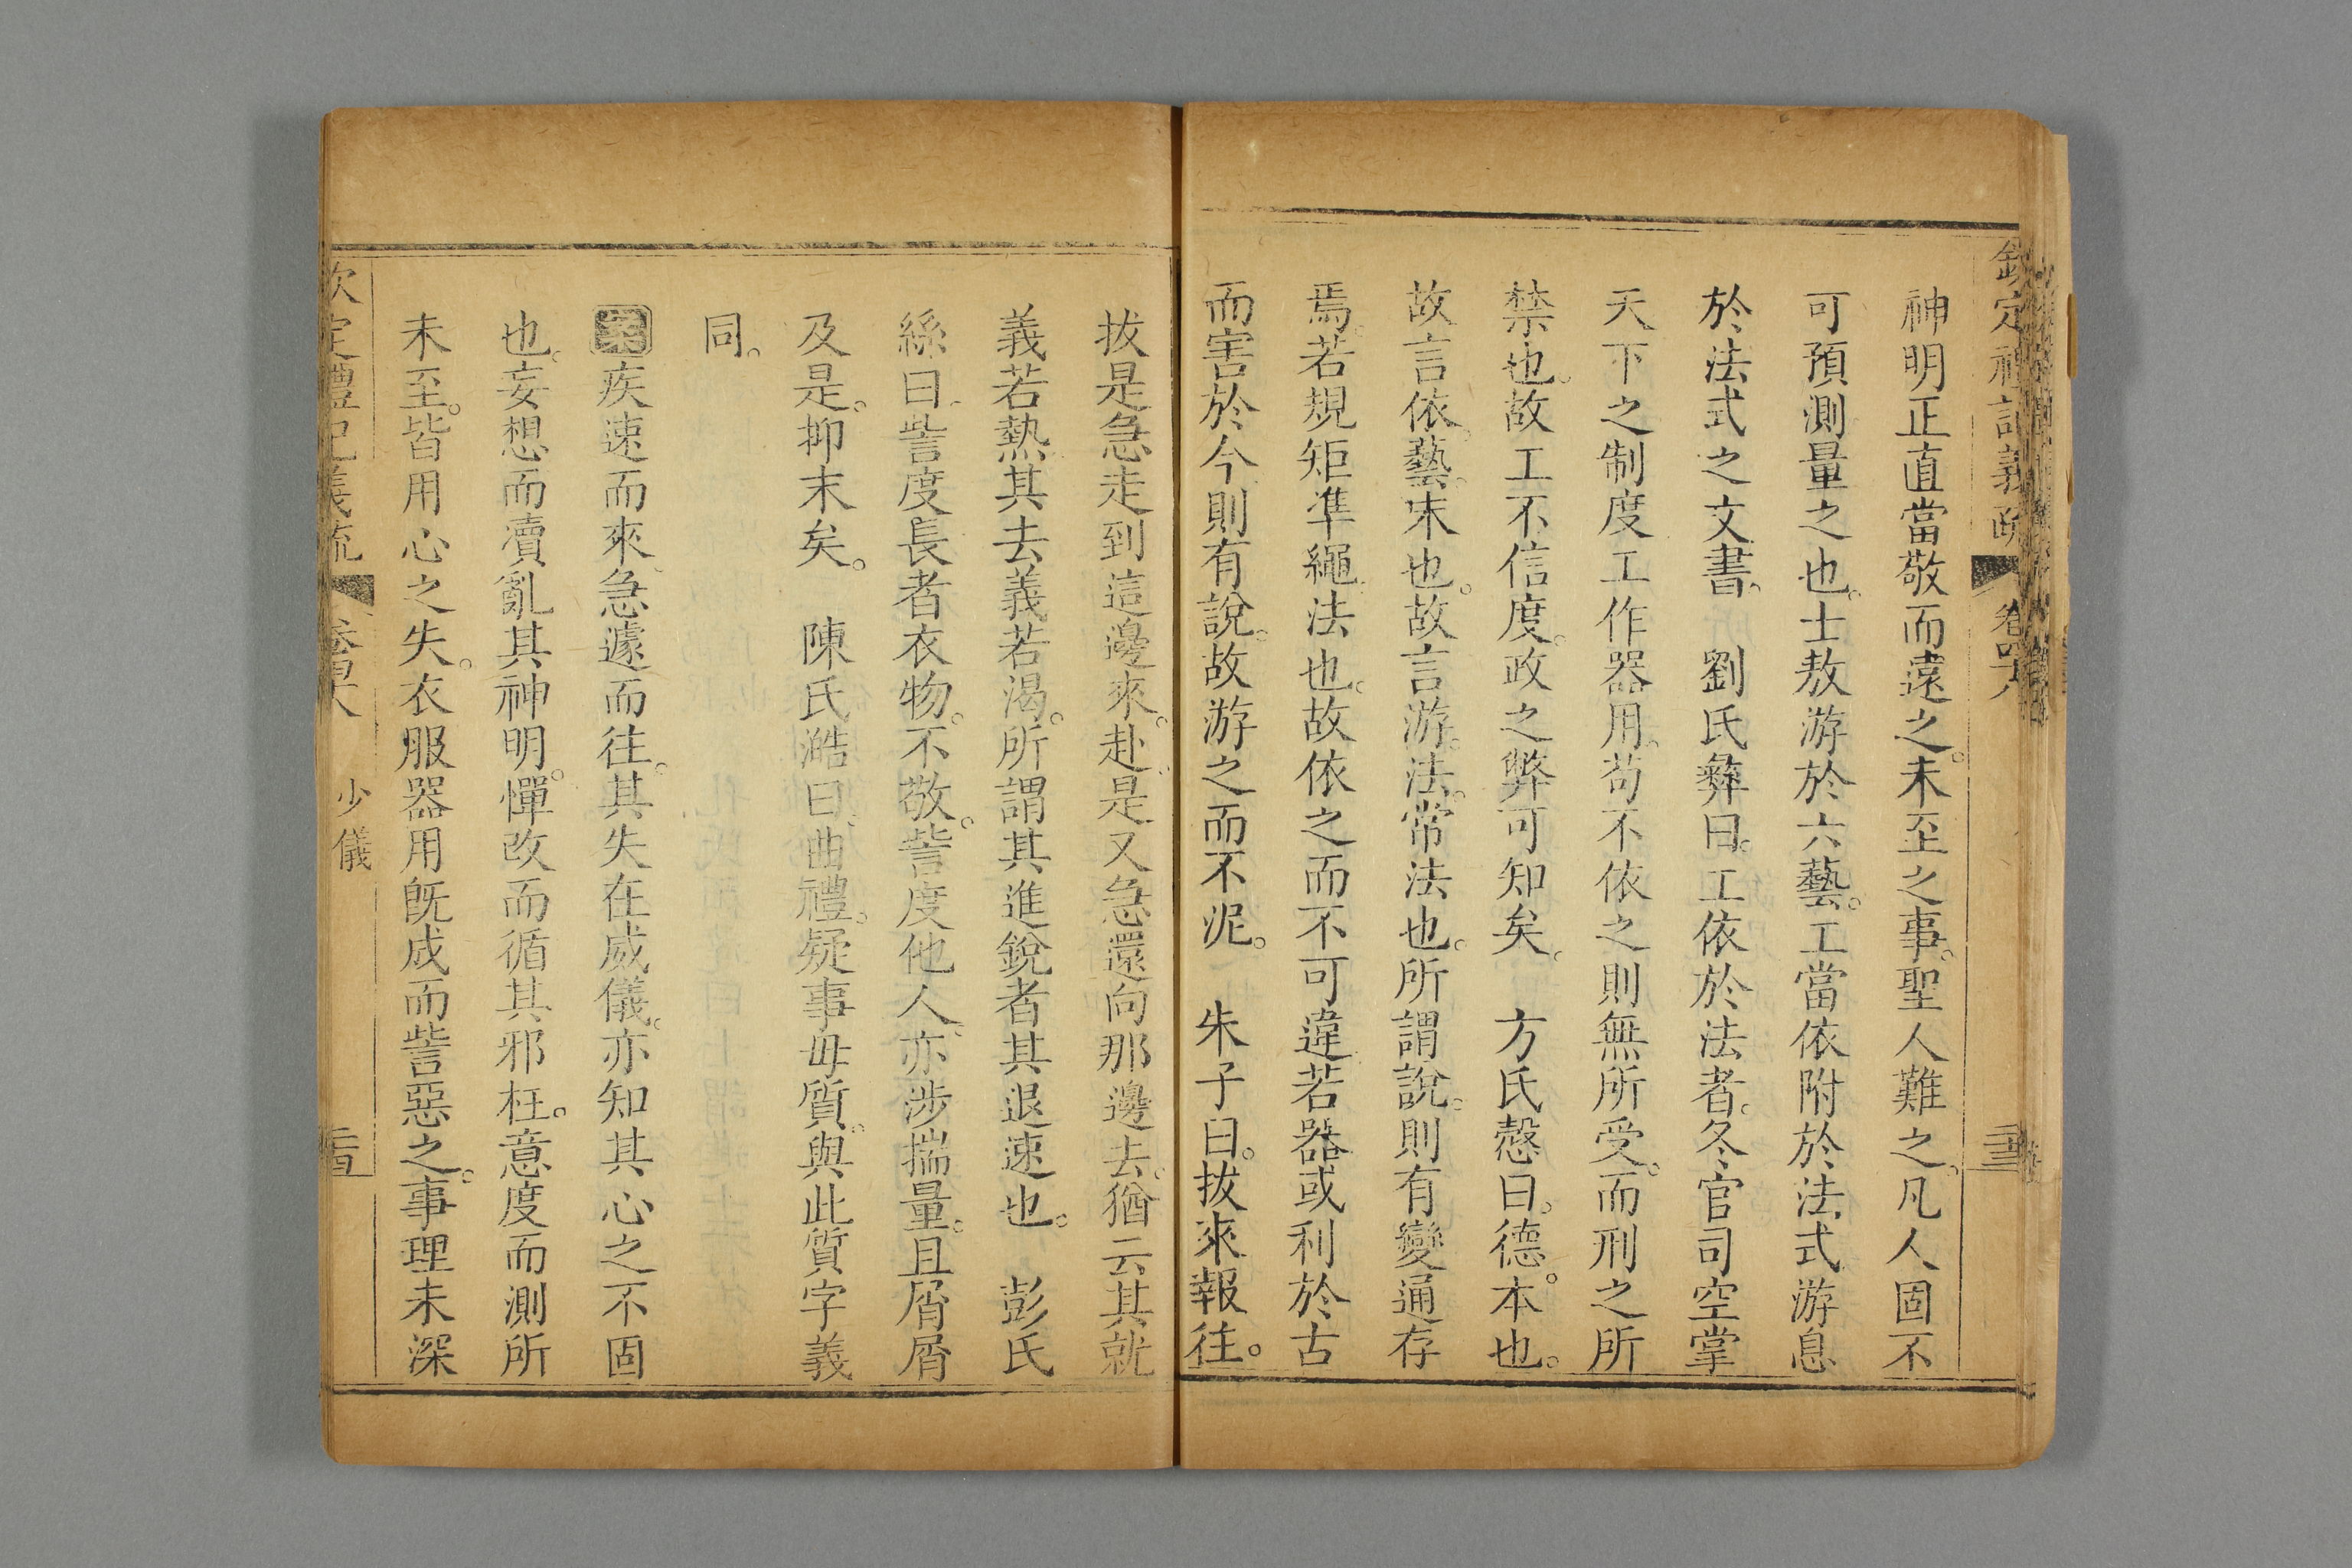 欽定禮記義疏
卷四十八
神明正直當敬而遠之。未至之事。聖人難之。凡人固不
可預測量之也。士敖游於六藝。工當依附於法式游息
於法式之文書。　劉氏彝曰。工依於法者。冬官司空掌
天下之制度工作器用。苟不依之則無所受。而刑之所
禁也。故工不信度。政之弊可知矣。　方氏慤曰。德。本也。
故言依。藝。末也。故言游。法。常法也。所謂說。則有變通存
焉。若規矩準繩。法也。故依之而不可違若器或利於古
而害於今則有說。故游之而不泥。　朱子曰。拔來報往。
拔是急走到這邊來。赴是又急還向那邊去。猶云其就
義若熱其去義若渴。所謂其進銳者其退速也。　彭氏
絲曰訾度長者衣物。不敬。訾度他人。亦涉揣量。且屑屑
及是。抑末矣。　陳氏澔曰。曲禮。疑事毋質。與此質字義
同。
案疾速而來。急遽而往。其失在威儀。亦知其心之不固
也。妄想而瀆亂其神明。憚改而循其邪枉。意度而測所
未至。皆用心之失。衣服器用旣成而訾惡之。事理未深
欽定禮記義疏
卷四十八
少儀